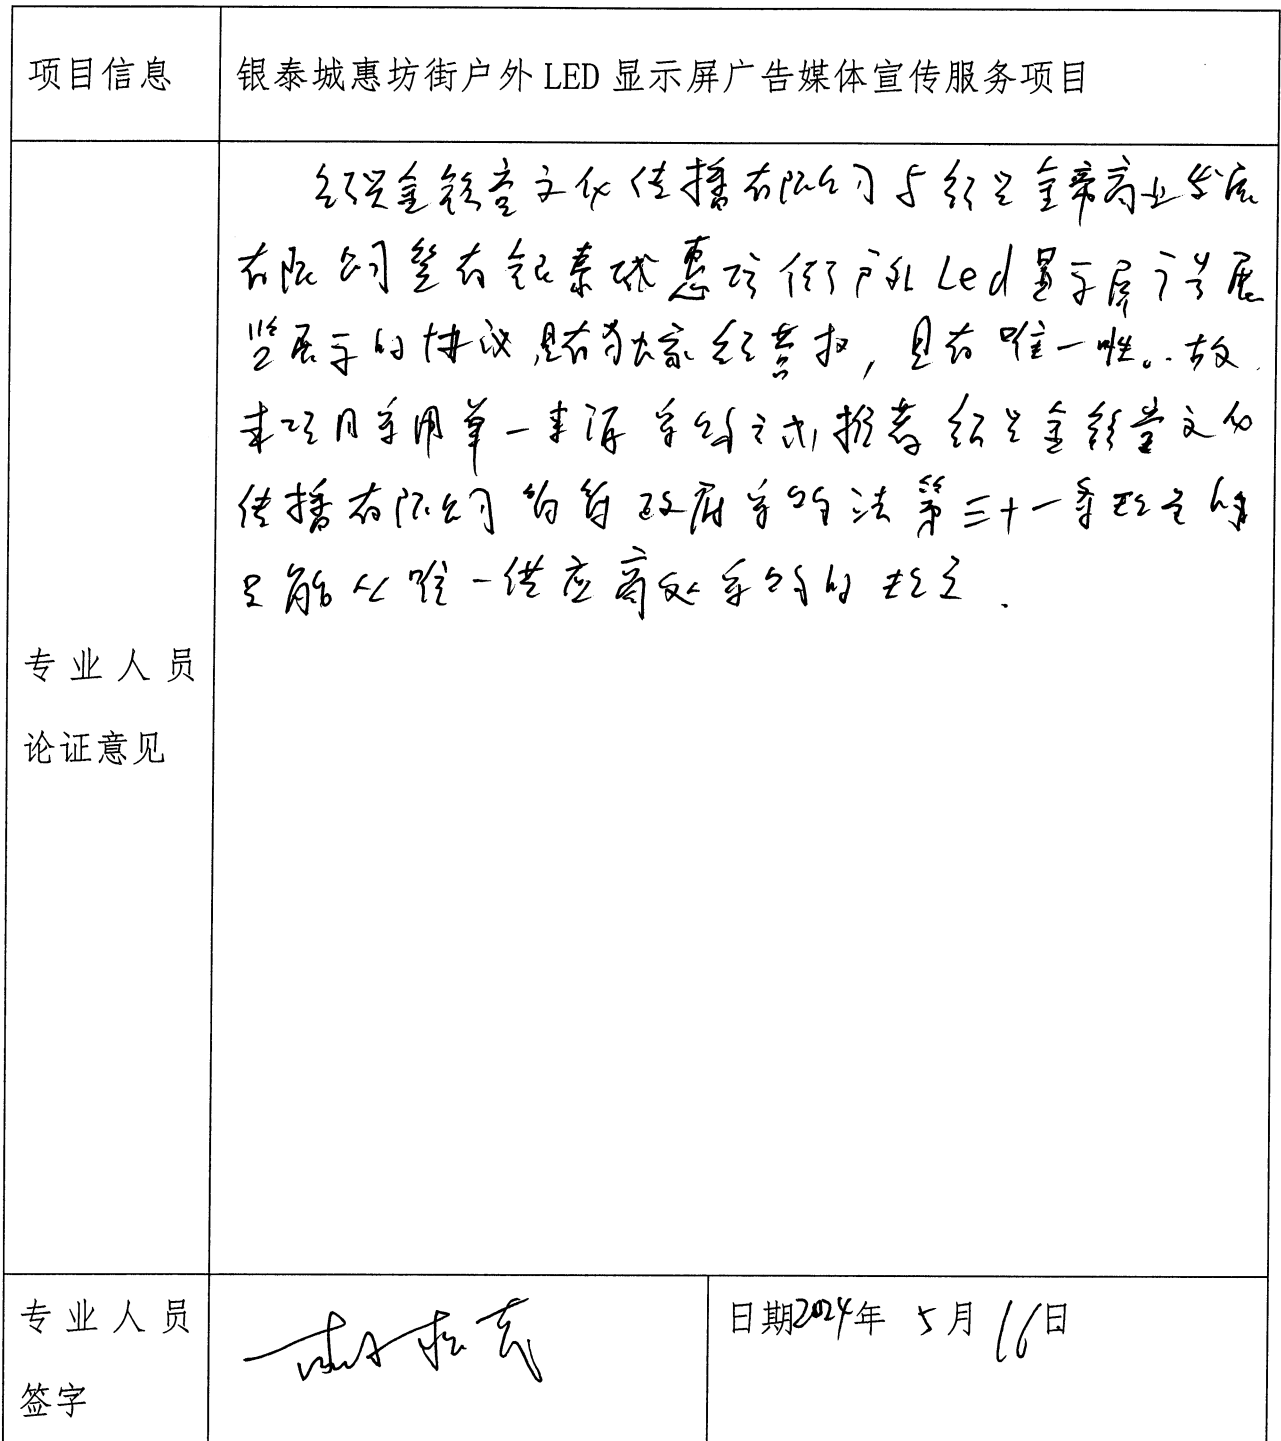 项目信息
银泰城惠坊街户外 LED 显示屏广告媒体宣传服务项目
绍兴金铃堂文化传播有限公司与绍兴金帝商业发展
有限公司签有银泰城惠坊街户外Led显示屏广告展
览展示的协议,具有独家经营权,具有唯一性。故
本项目采用单一来源采购方式,推荐绍兴金铃堂文化
传播有限公司 符政府采购法第三十一条规定的
只能从唯一供应商处采购的规定.
专业人员
论证意见
专业人员
签字
日期2024年 5月 16日